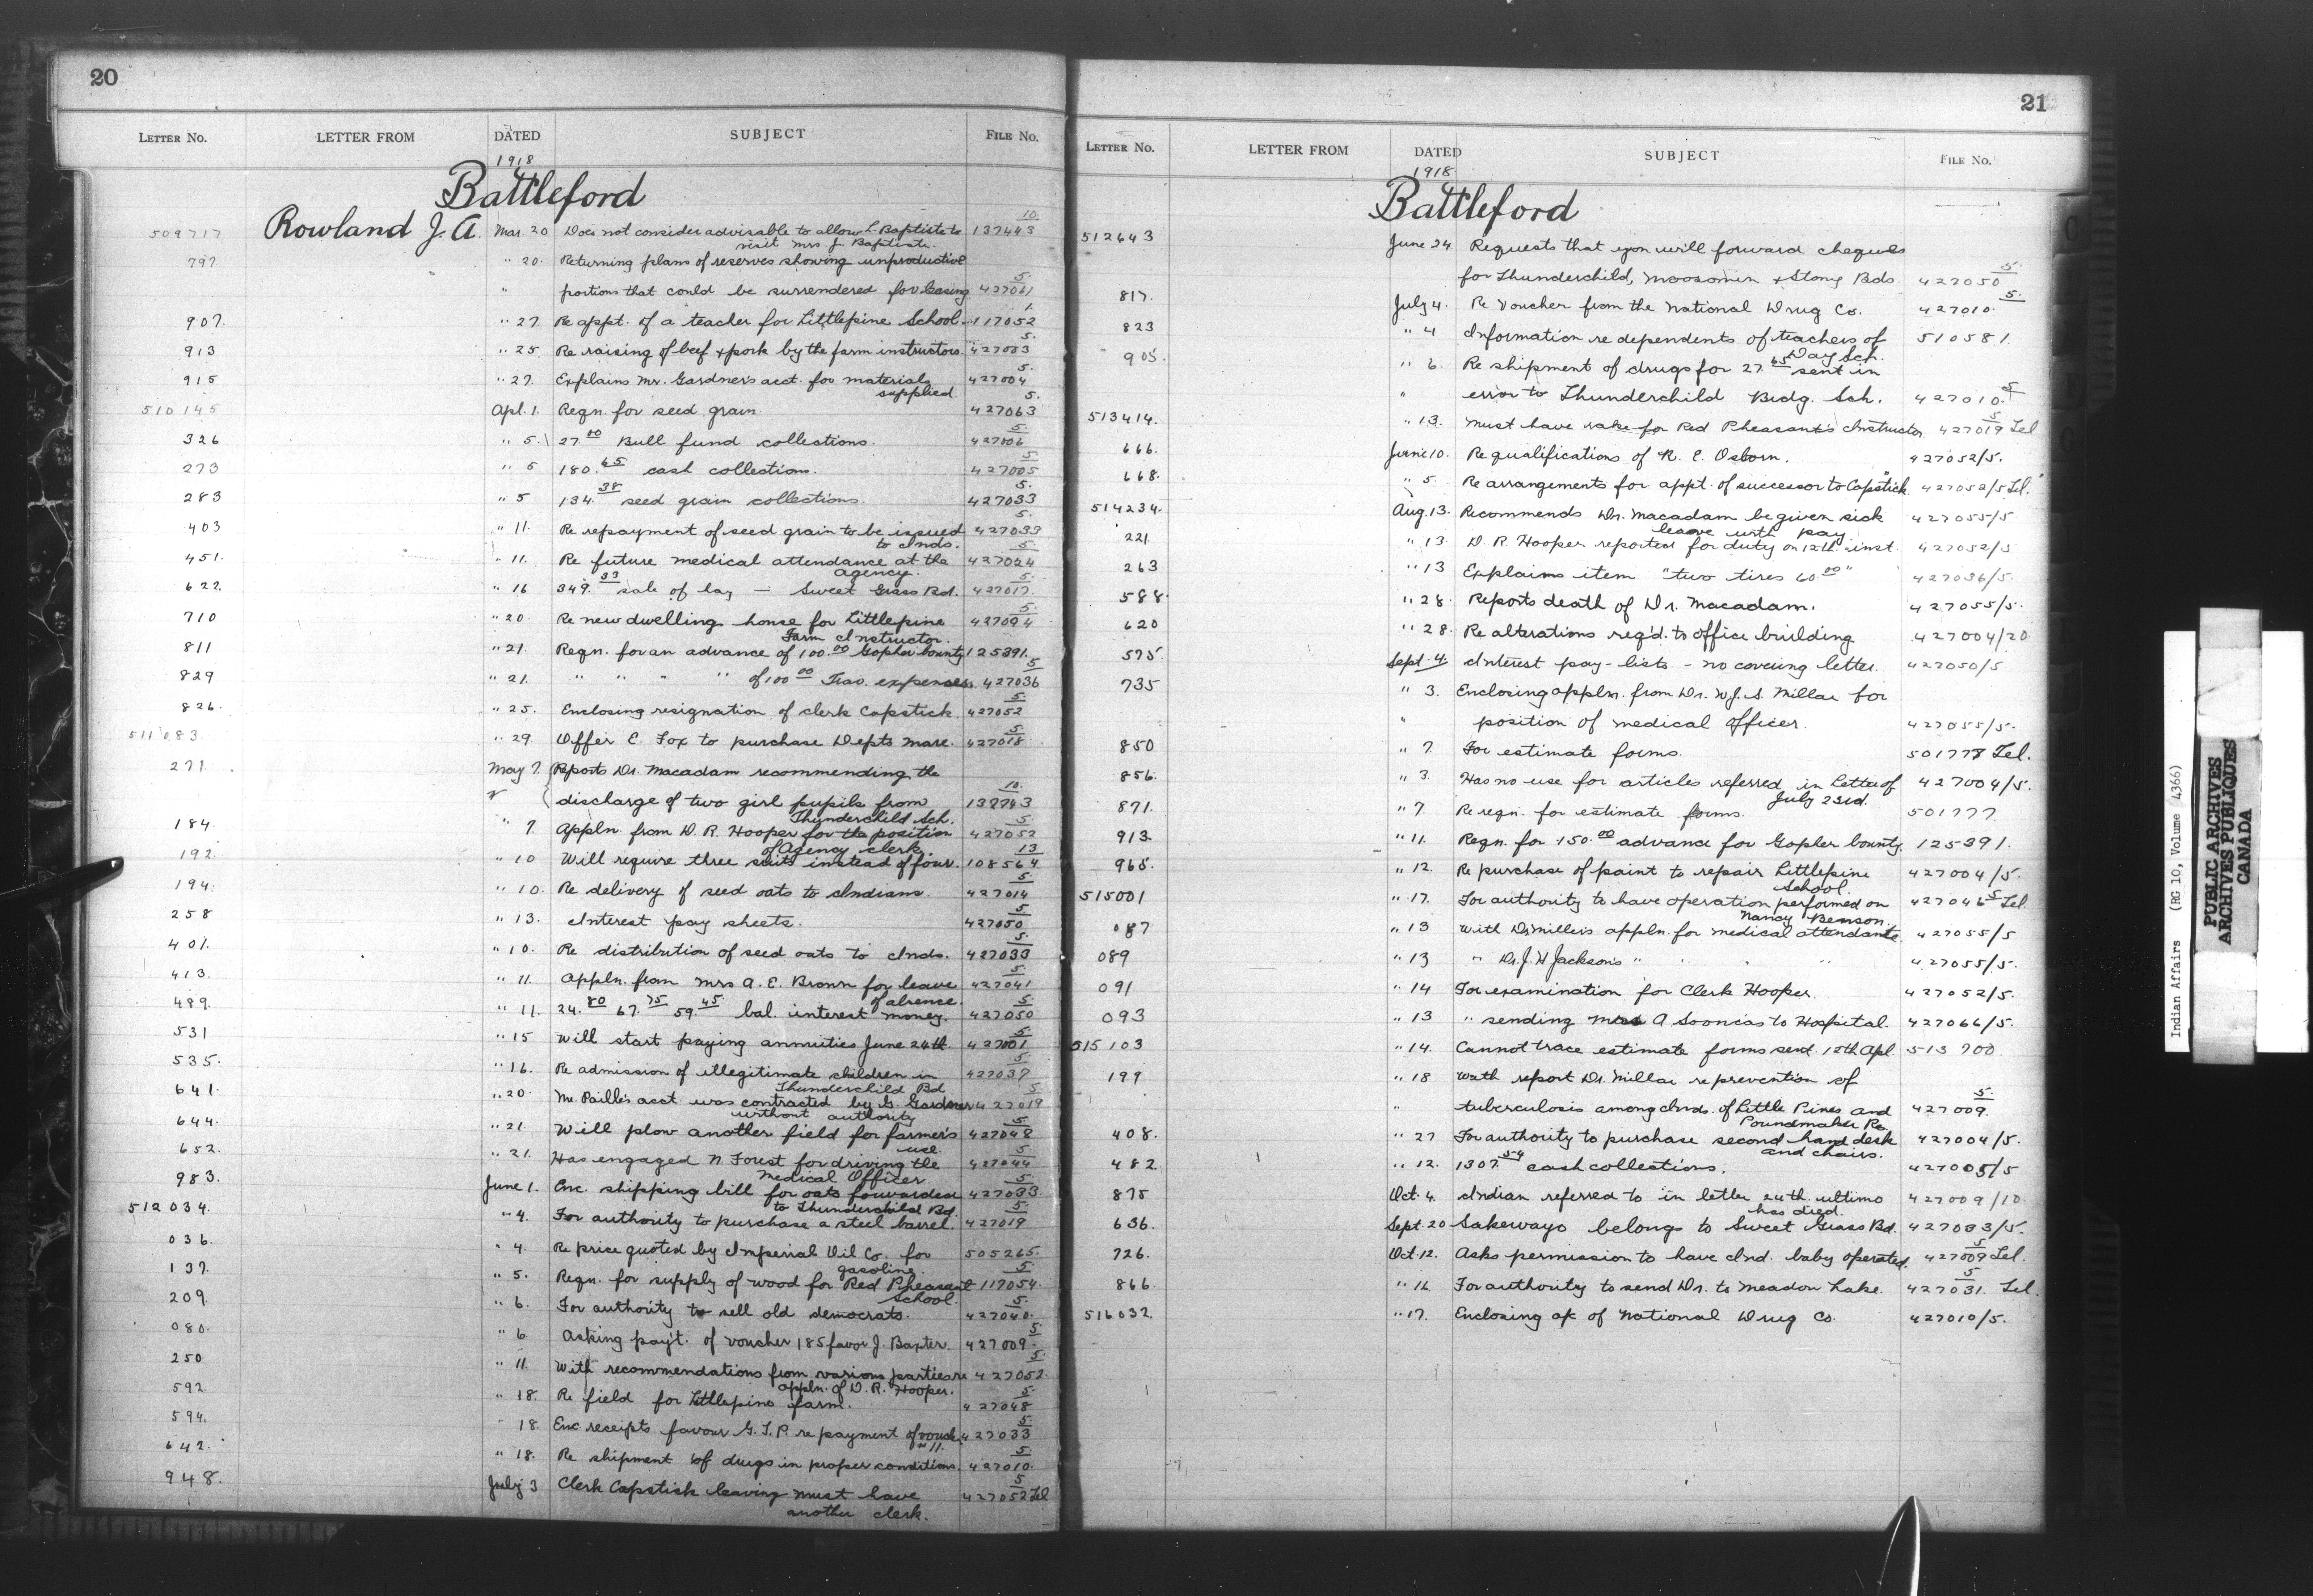 20
LETTER No. LETTER FROM DATED SUBJECT FILE No.
1918
Battleford
509717 Rowland J. A. Mar. 20 Does not consider advisable to allow L. Baptiste to 137443 10.
visit Mrs J. Baptiste.
797 " 20. Returning plans of reserves showing unproductive
" portions that could be surrendered for leasing 427061 5.
907. " 27 Re appt. of a teacher for Littlepine School. 117052 1.
913 " 25 Re raising of beef & pork by the farm instructors. 427003 5.
915 " 27. Explains Mr. Gardner's acct. for materials 427004 5.
supplied.
510145 Apl. 1. Reqn. for seed grain 427063 5.
326 " 5. 27.00 Bull fund collections. 427006 5.
273 " 5 180.65 cash collections. 427005 5
283 " 5 134.38 seed grain collections. 427033 5.
403 " 11. Re repayment of seed grain to be issued 427033 5.
to Inds.
451. " 11. Re future medical attendance at the 427024 5.
agency.
622. " 16 349.33 sale of hay — Sweet Grass Bd. 427017. 5.
710 " 20. Re new dwelling house for Littlepine 427094 5.
Farm Instructor.
811 " 21. Reqn. for an advance of 100.00 Gopher bounty 125391.
829 " 21. " " " " of 100.00 Trav. expenses. 427036 5
826. " 25. Enclosing resignation of clerk Capstick 427052 5.
511083 " 29. Offer E. Fox to purchase Depts mare. 427018 5
271. May 7. Reports Dr. Macadam recommending the
" discharge of two girl pupils from 137743 10.
Thunderchild Sch.
184. " 7. Appln. from D. R. Hooper for the position 427052 5
of Agency clerk.
192. " 10 Will require three suits instead of four. 108564 13
194. " 10. Re delivery of seed oats to Indians. 427014 5
258 " 13. Interest pay sheets. 427050 5
401. " 10. Re distribution of seed oats to Inds. 427033 5.
413. " 11. Appln. from Mrs A. E. Brown for leave 427041 5.
of absence.
489. " 11. 24.80 67.75 59.45 bal. interest money. 427050 5
531 " 15 Will start paying annuities June 24th. 427001 5
535. " 16. Re admission of illegitimate children in 427037 5.
Thunderchild Bd
641. " 20. Mr Paille's acct was contracted by G. Gardner 427019 5
without authority
644. " 21. Will plow another field for farmer's 427048 5
use.
652. " 21. Has engaged N Forest for driving the 427044 5
Medical Officer
983. June 1. Enc. shipping bill for oats forwarded 427033. 5
to Thunderchild Bd.
512034. " 4. For authority to purchase a steel barrel 427019 5.
036. " 4. Re price quoted by Imperial Oil Co. for 505265.
gasoline.
137. " 5. Reqn. for supply of wood for Red Pheasant 117054. 5
School.
209. " 6. For authority to sell old democrats. 427040. 5.
080. " 6 Asking pay't. of voucher 185 favor J. Baxter. 427009. 5
250 " 11. With recommendations from various parties re 427052. 5.
appln. of D. R. Hooper.
592. " 18. Re field for Littlepine farm. 427048 5.
594. " 18 Enc receipts favour G. T. P. re payment of vouch. 427033 5
" 11.
642. " 18. Re shipment of drugs in proper conditions. 427010. 5
948. July 3 Clerk Capstick leaving must have 427052 Tel 5
another clerk.
21
LETTER No. LETTER FROM DATED SUBJECT FILE No.
1918
Battleford
512643 June 24. Requests that you will forward cheques
for Thunderchild, Moosomin & Stony Bds. 427050 5.
817. July 4. Re voucher from the National Drug Co. 427010. 5.
823 " 4 Information re dependents of teachers of 510581.
Day Sch.
905. " 6. Re shipment of drugs for 27.65 sent in
" error to Thunderchild Brdg. Sch. 427010. 5
513414. " 13. Must have rake for Red Pheasant's Instructor 427019 Tel 5
666. June 10. Re qualifications of R. E. Osborn. 427052/5.
668. " 5. Re arrangements for appt. of successor to Capstick. 427052/5 Tel.
514234. Aug. 13. Recommends Dr. Macadam be given sick 427055/5
leave with pay
221. " 13 D. R. Hooper reported for duty on 12th inst 427052/5
263 " 13 Explains item "two tires 60.00" 427036/5.
588. " 28. Reports death of Dr. Macadam. 427055/5.
620 " 28. Re alterations req'd. to office building 427004/20
575. Sept. 4. Interest pay-lists - no covering letter. 427050/5
735 " 3. Enclosing appln. from Dr. W. J. S. Millar for
" position of medical officer. 427055/5.
850 " 7. For estimate forms. 501777 Tel.
856. " 3. Has no use for articles referred in letter of 427004/5.
July 23rd.
871. " 7. Re reqn. for estimate forms. 501777
913. " 11. Reqn. for 150.00 advance for Gopher bounty. 125391.
965. " 12. Re purchase of paint to repair Littlepine 427004/5.
School.
515001 " 17. For authority to have operation performed on 427046 5 Tel.
Nancy Benson.
087 " 13 With Dr Miller's appln. for medical attendants 427055/5
089 " 13 " Dr. J. H Jackson's " " " " 427055/5.
091 " 14 For examination for Clerk Hooper. 427052/5.
093 " 13 " sending Mrs A Sooncas to Hospital. 427066/5.
515103 " 14. Cannot trace estimate forms send. 15th Apl. 513700.
199 " 18 With report Dr. Millar re prevention of
" tuberculosis among Inds. of Little Pines and 427009. 5.
Poundmaker Re.
408. " 27 For authority to purchase second hand desk 427004/5.
and chairs.
482 " 12. 1307.54 cash collections. 427005/5
875 Oct. 4. Indian referred to in letter 24th ultimo 427009/10
has died.
636. Sept. 20 Sakewayo belongs to Sweet Grass Bd. 427033/5.
726. Oct. 12. Asks permission to have Ind. baby operated. 427009 Tel. 5
866 " 16 For authority to send Dr. to Meadon Lake. 427031. Tel. 5
516032. " 17. Enclosing a/c of National Drug Co. 427010/5.
Indian Affairs (RG 10, Volume 4366)
PUBLIC ARCHIVES
ARCHIVES PUBLIQUES
CANADA